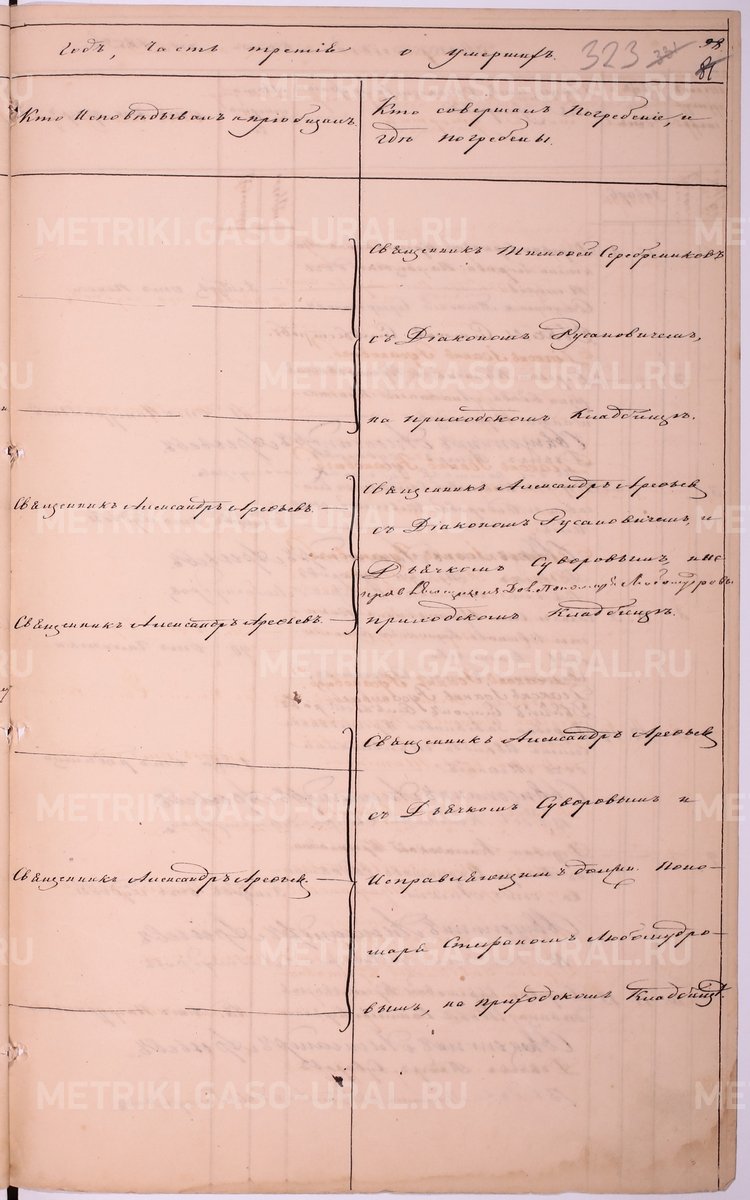 годъ, часть третія о умершихъ.
323
98
Кто Исповѣдывалъ и пріобщалъ.
Кто совершалъ Погребеніе, и
гдѣ погребены.
Священникъ Тимофей Серебренниковъ
съ Діакономъ Русановичемъ,
на приходскомъ Кладбищѣ.
Священникъ Александръ Арефьевъ.
Священникъ Александръ Арефьевъ
съ Діакономъ Русановичемъ, и
Дьячкомъ Суворовымъ, и ис-
прав Дол. Пономаря Любомудровъ
Священникъ Александръ Арефьевъ.
приходскомъ Кладбищѣ.
Священникъ Александръ Арефьевъ
съ Дьячкомъ Суворовымъ и
Священникъ Александръ Арефьевъ
Исправляющимъ должн. Поно-
маря Стефаномъ Любомудро-
вымъ, на приходскомъ Кладбищѣ.
METRIKI.GASO-URAL.RU